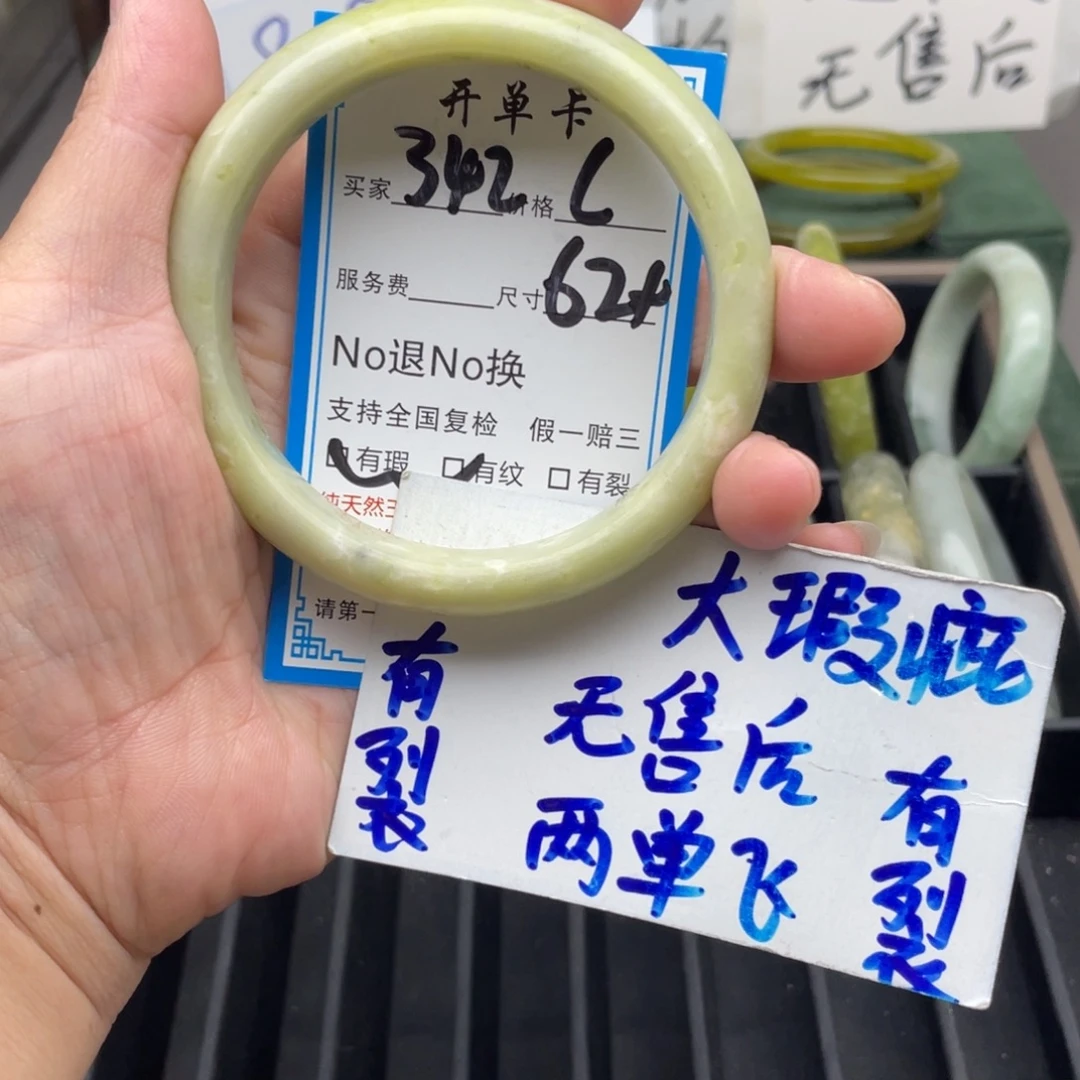 无售后
开单卡
买家 342 价格 L
服务费 尺寸 62+
No退No换
支持全国复检 假一赔三
有瑕 有纹 有裂
纯天然
请第一
大瑕疵
无售后
两单飞
有裂
有裂